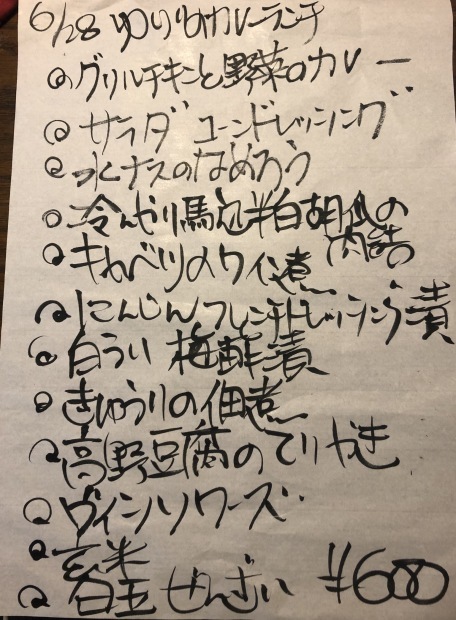 6/28 ゆりりのカレーランチ
グリルチキンと野菜のカレー
サラダ コーンドレッシング
水ナスのなめろう
冷んやり馬込半白胡瓜の
肉詰
キャベツのワイン煮
にんじんフレンチドレッシング漬
白うり 梅酢漬
きゅうりの佃煮
高野豆腐のてりやき
ヴィシソワーズ
玄米
白玉ぜんざい ¥600